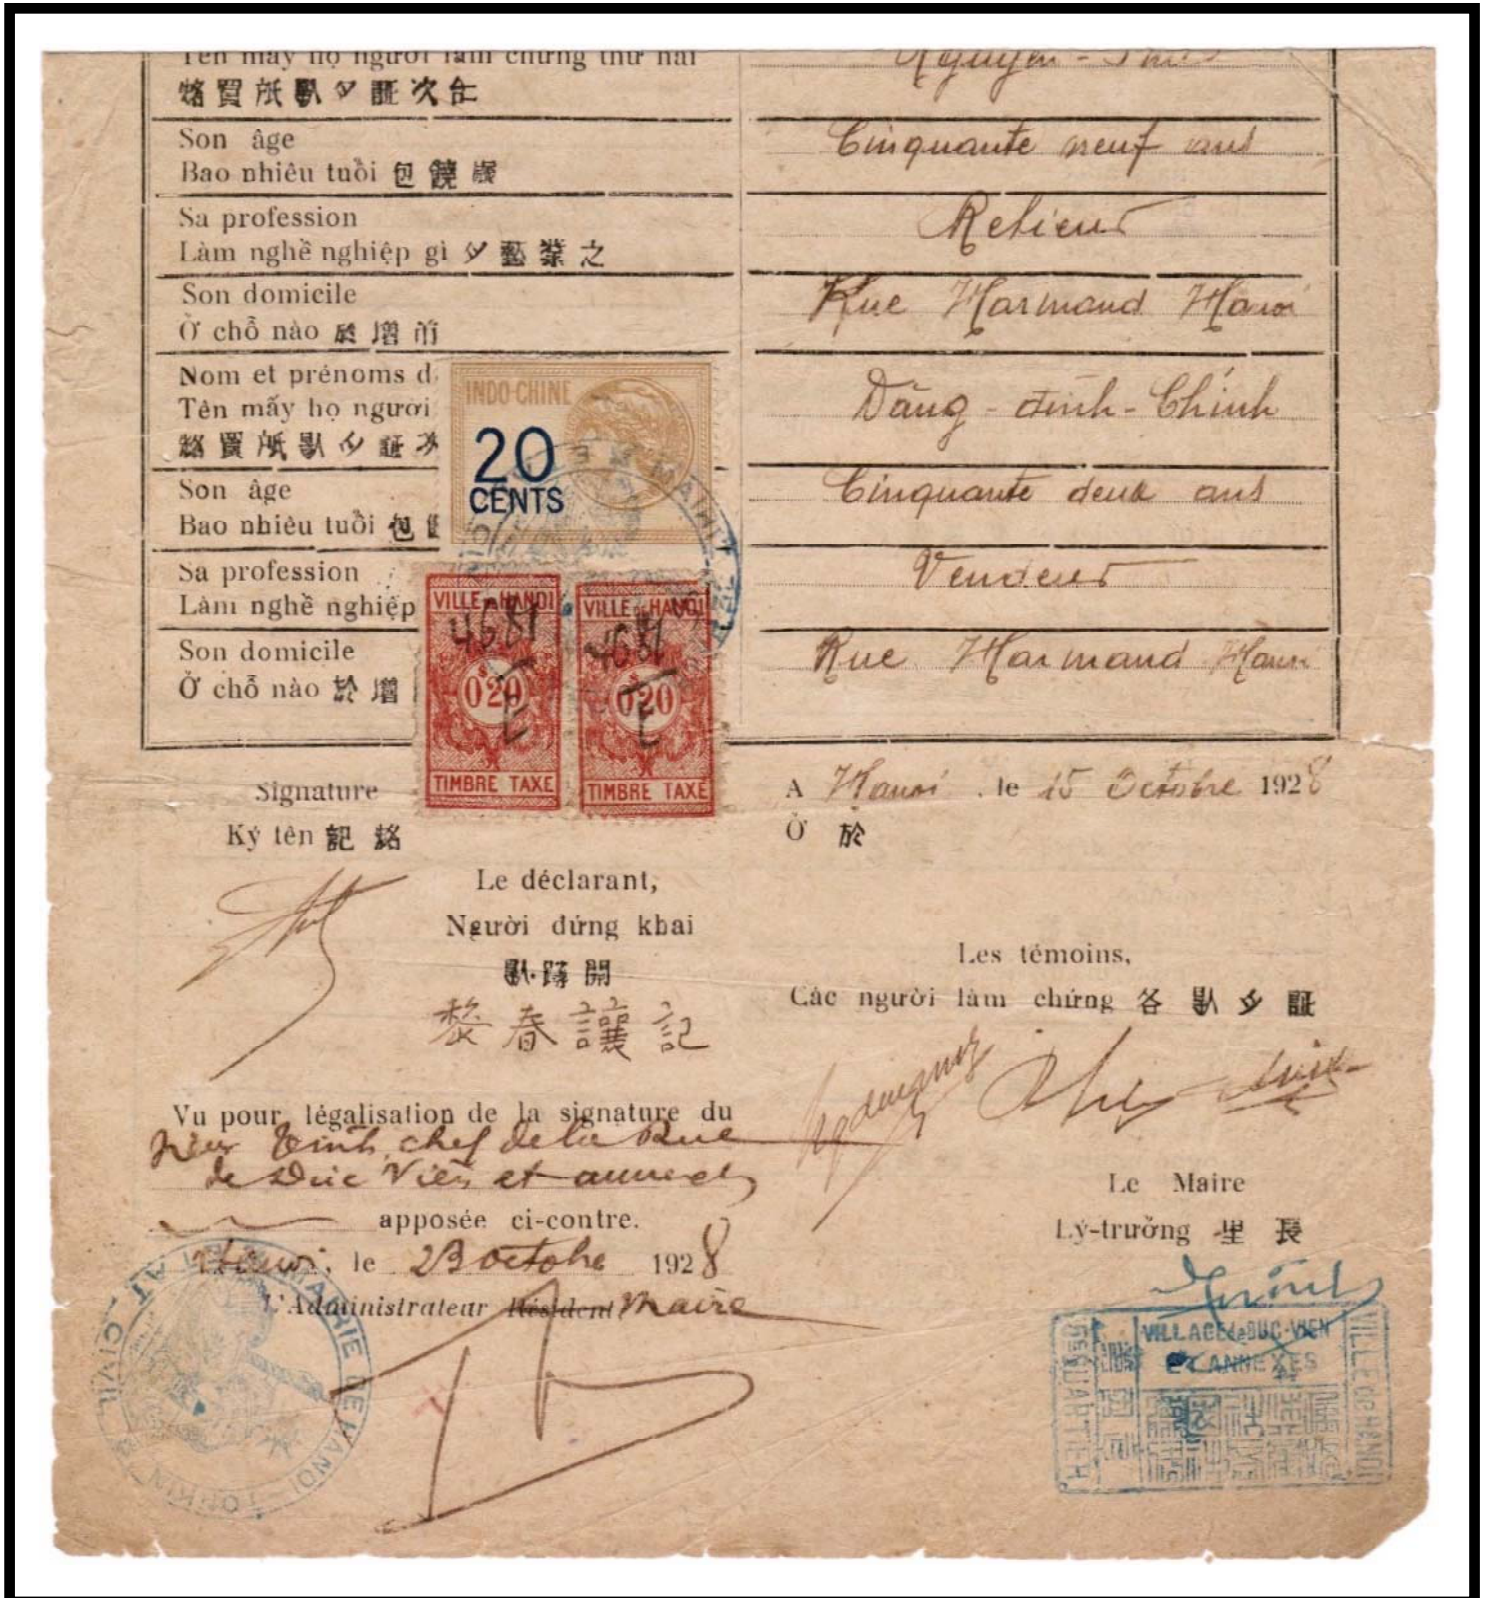 Tên mấy họ người làm chứng thứ hai
Nguyen -
Son âge
Bao nhiêu tuổi 包饒歲
Cinquante neuf ans
Sa profession
Làm nghề nghiệp gì 夕藝業之
Relieur
Son domicile
Ở chỗ nào 於增
Rue Harmand Hanoi
Nom et prénoms d
Tên mấy họ người
Dăng - đình - Chính
Son âge
Bao nhiêu tuổi 包
Cinquante deux ans
Sa profession
Làm nghề nghiệp
Vendeur
Son domicile
Ở chỗ nào 於增
Rue Harmand Hanoi
INDO-CHINE
20
CENTS
VILLE DE HANOI
4681
0$20
TIMBRE TAXE
VILLE DE HANOI
4681
0$20
TIMBRE TAXE
Signature
Ký tên 記
A Hanoi, le 15 Octobre 1928
Ở 於
Le déclarant,
Người đứng khai
開
黎春讓記
Les témoins,
Các người làm chứng 各 夕 証
Vu pour légalisation de la signature du
sieur Vinh, chef de la Rue
de Duc Viên et annexes
apposée ci-contre.
Hanoi, le 23 octobre 1928
L'Administrateur Résident Maire
Le Maire
Lý-trưởng 里長
MAIRIE DE HANOI - TONKIN
ETAT CIVIL
VILLAGE de DUC-VIEN
ET ANNEXES
VILLE DE HANOI